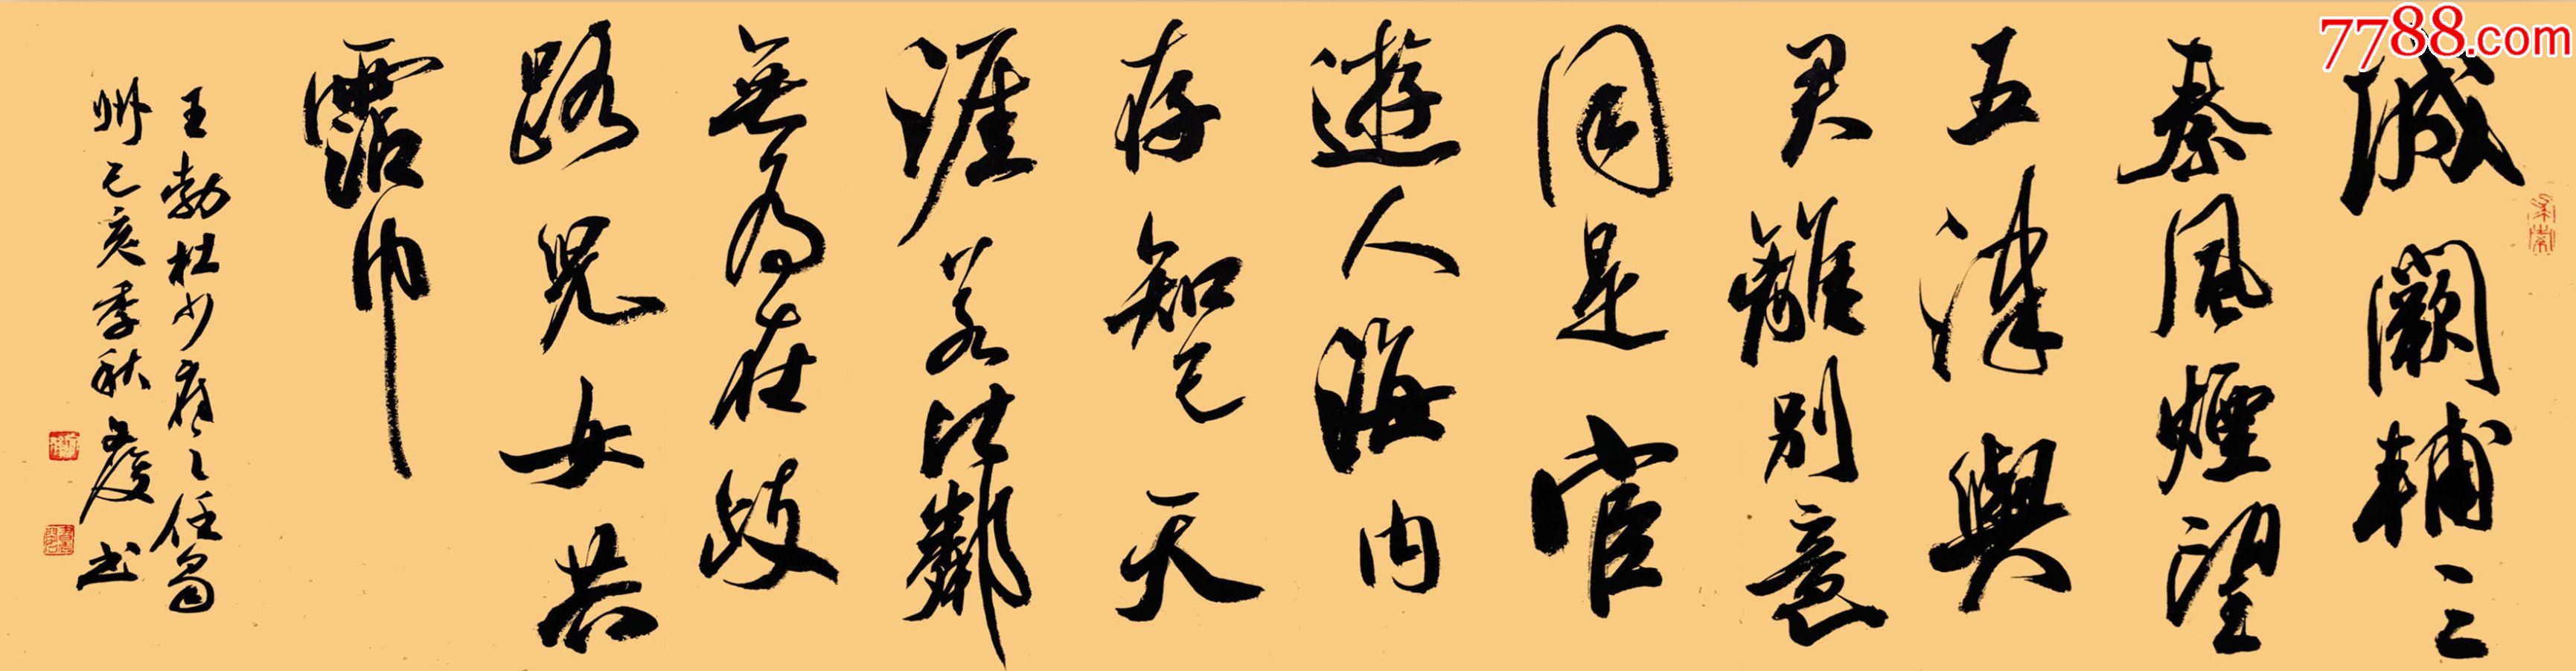 7788.com
城闕輔三
秦風煙望
五津與
君離別意
同是宦
遊人海内
存知己天
涯若比鄰
無為在歧
路兒女共
霑巾
王勃杜少府之任蜀
州己亥季秋书